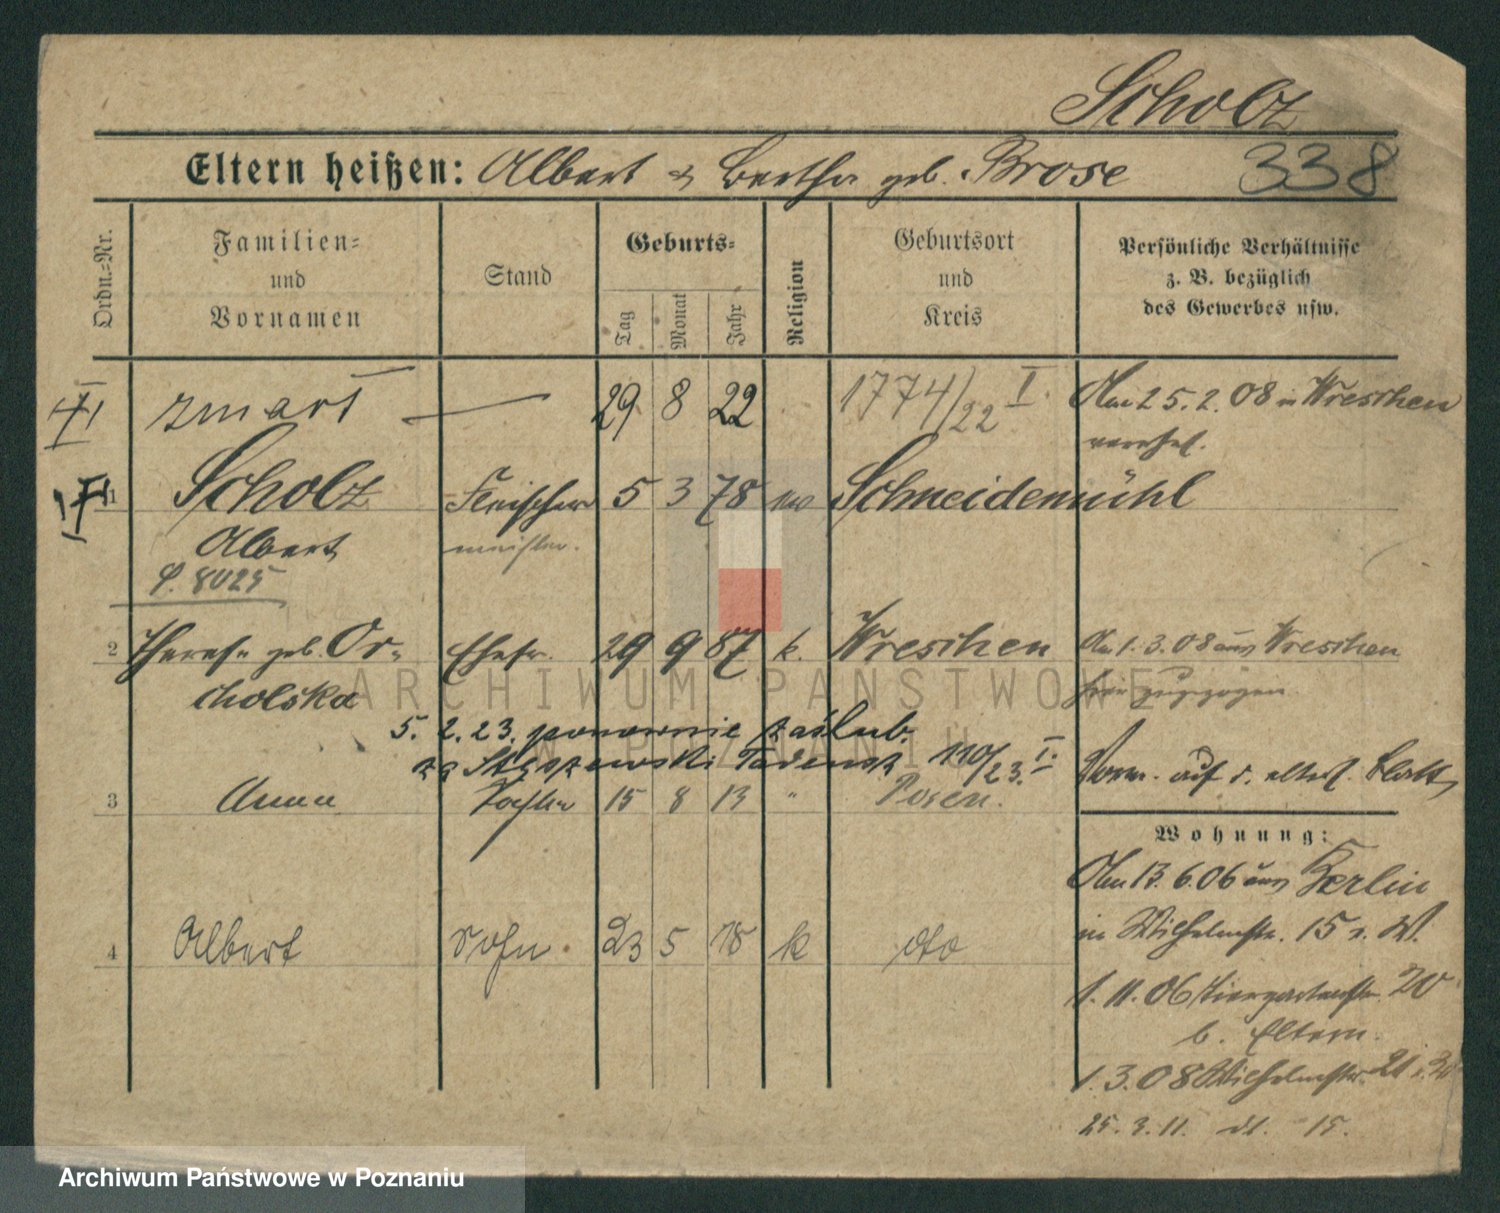 Scholz
Eltern heißen: Albert & Bertha geb. Brose 338
Ordn.-Nr.
Familien-
und
Vornamen
Stand
Geburts-
Tag
Monat
Jahr
Religion
Geburtsort
und
Kreis
Persönliche Verhältnisse
z. B. bezüglich
des Gewerbes usw.
zmarł — 29 8 22 1774/22 I. Am 25.2.08 in Wreschen
verehel.
1 Scholz Fleischer 5 3 78 Schneidemühl
Albert meister.
P. 8025
2 Therese geb. Or- Ehefr. 29 9 87 k. Wreschen Am 1.3.08 aus Wreschen
cholska hier zugezogen
5. 2. 23. ponownie zaślub.
za Tadeusz 110/23. I.
3 Anna Tochter 15 8 13 " Posen. Verm. auf d. elterl. Blatt
Wohnung:
Am 13.6.06 aus Berlin
in Wilhelmstr. 15 W.
4 Albert Sohn 23 5 18 k dto
1.11.06 Tiergartenstr. 20
b. Eltern.
1.3.08 Wilhelmstr. 21
25.3.11. dt. 15.
ARCHIWUM PAŃSTWOWE
W POZNANIU
Archiwum Państwowe w Poznaniu